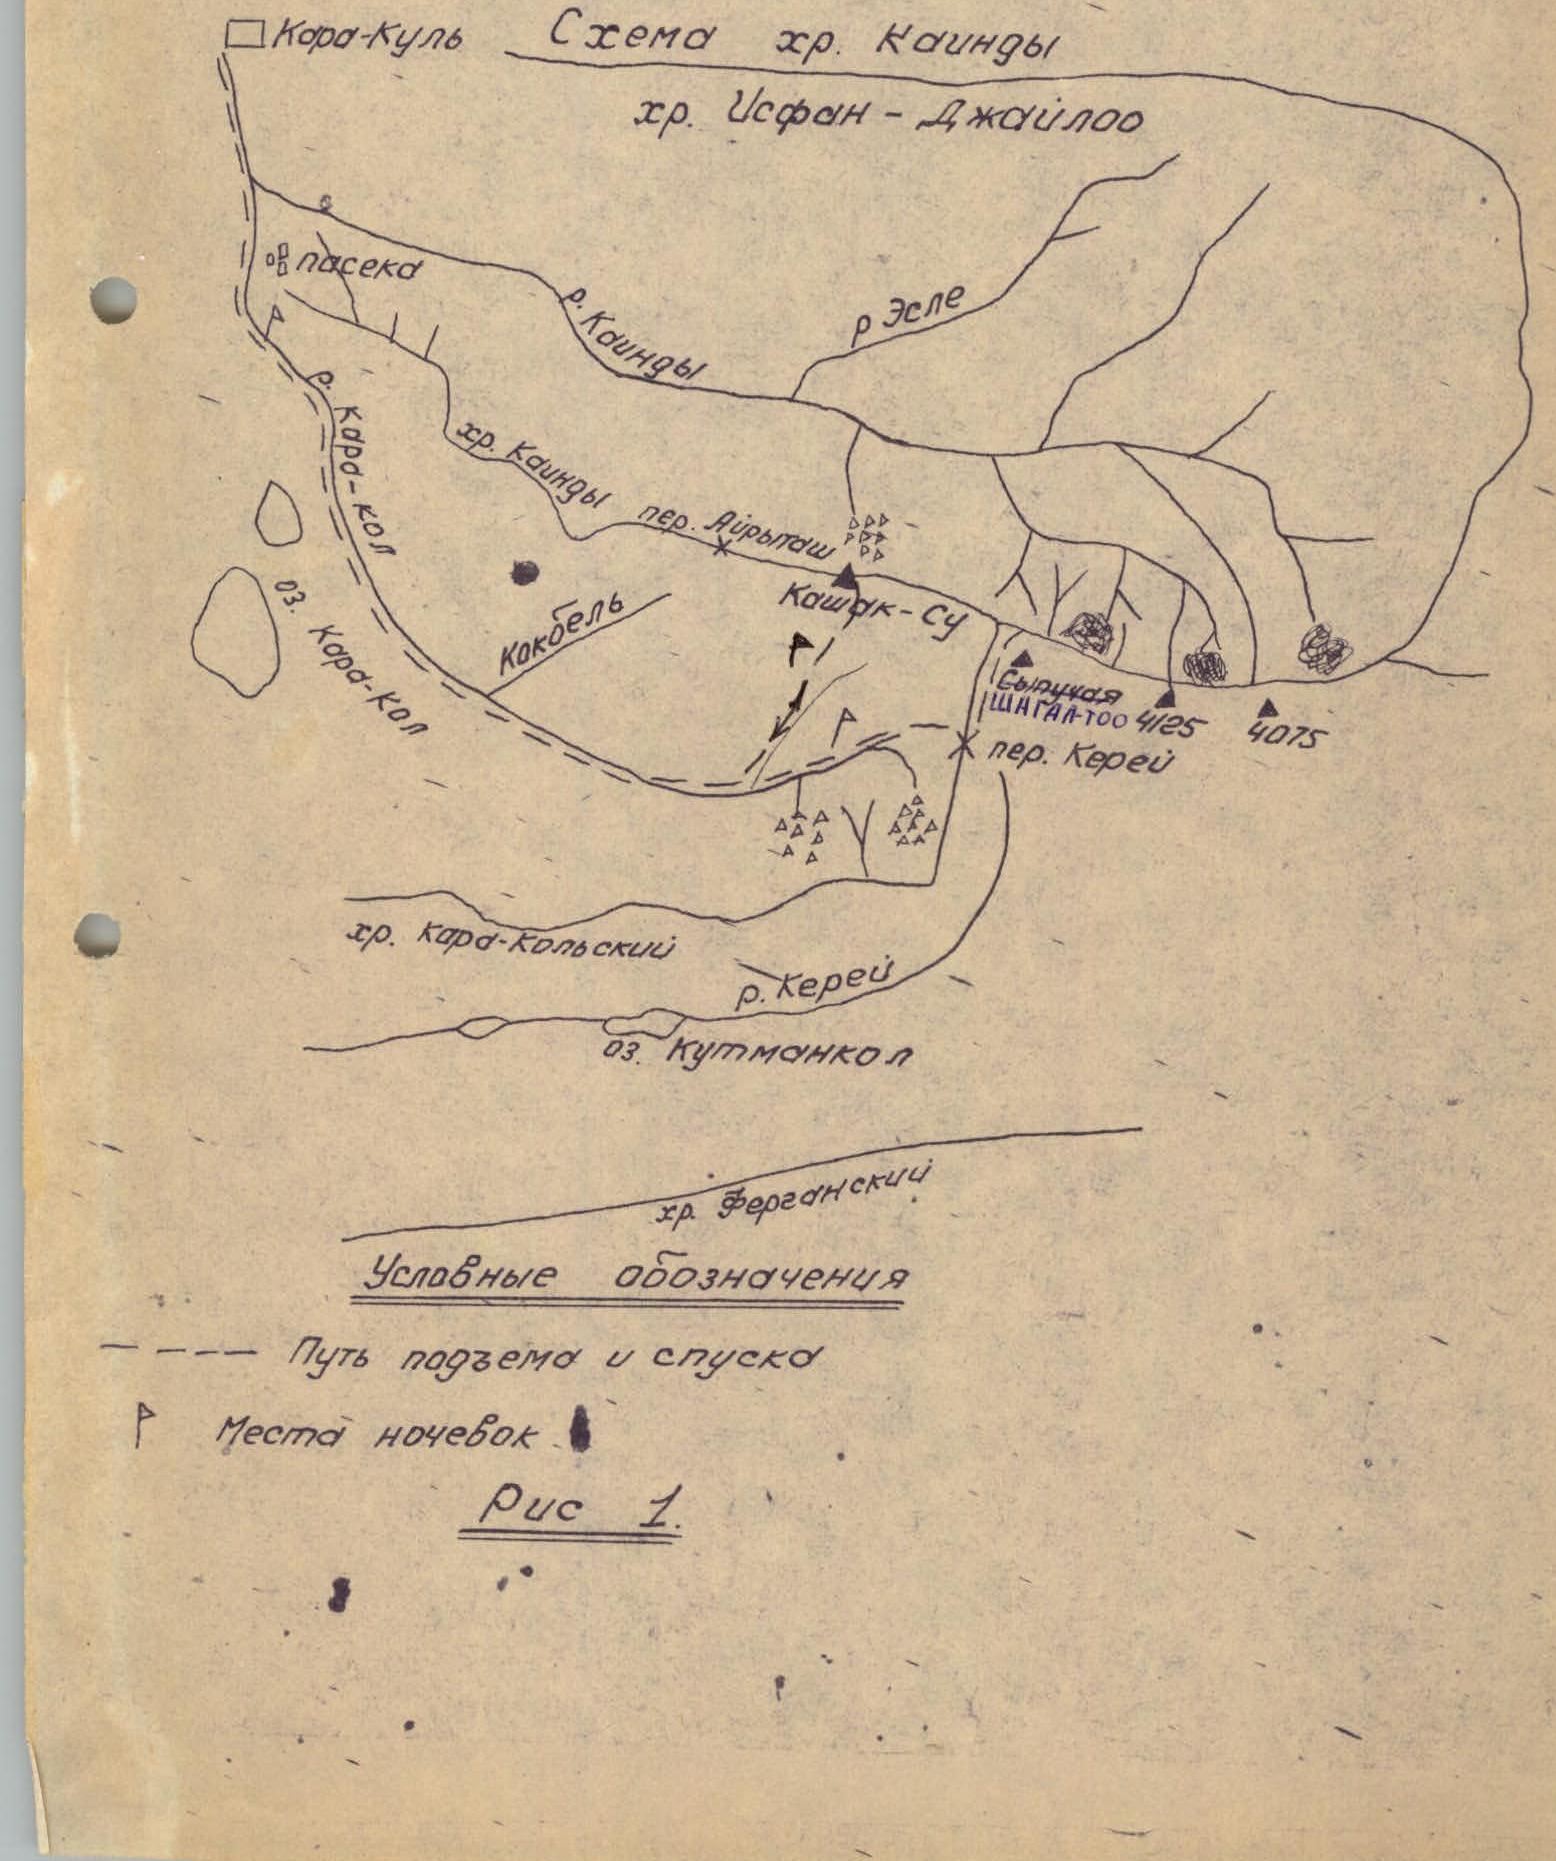 Кара-Куль
Схема хр. Каинды
хр. Исфан - Джайлоо
пасека
р. Каинды
р Эсле
р. Кара-кол
хр. Каинды
пер. Айрыташ
Кашак-Су
Кокбель
оз. Кара-кол
Сыпучая
ШНГАЛ-ТОО
4125
4075
пер. Керей
хр. Кара-Кольский
р. Керей
оз. Кутманкол
хр. Ферганский
Условные обозначения
Путь подъема и спуска
Места ночевок
Рис 1.